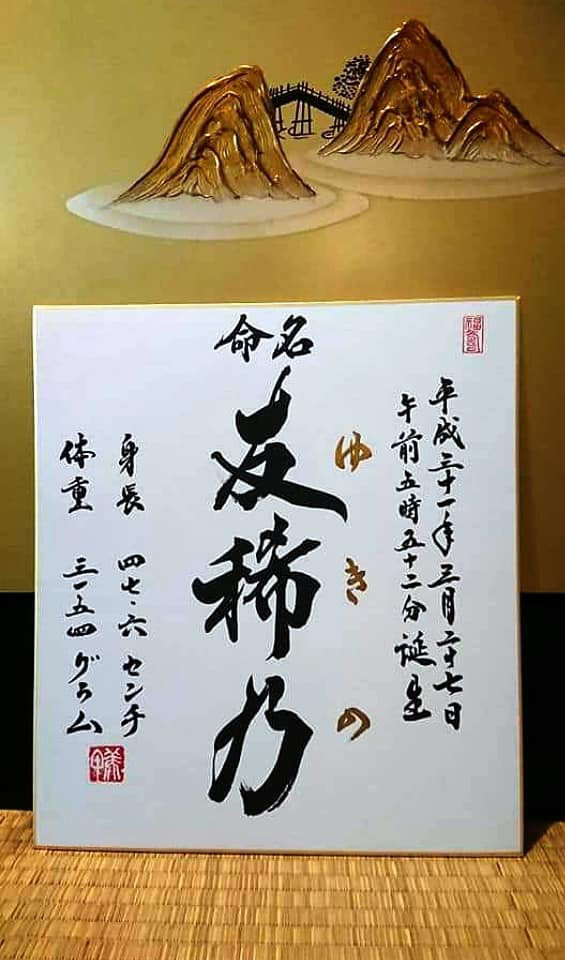 平成三十一年三月二十七日
午前五時五十二分誕生
命名
友稀乃
ゆきの
身長 四七・六センチ
体重 三一五四グラム